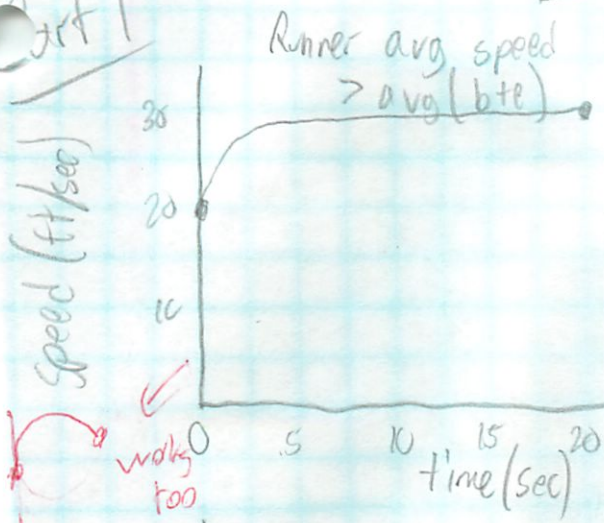 art 1
Runner avg speed
> avg(b+e)
Speed (ft/sec)
30
20
10
0 5 10 15 20
time (sec)
works
too